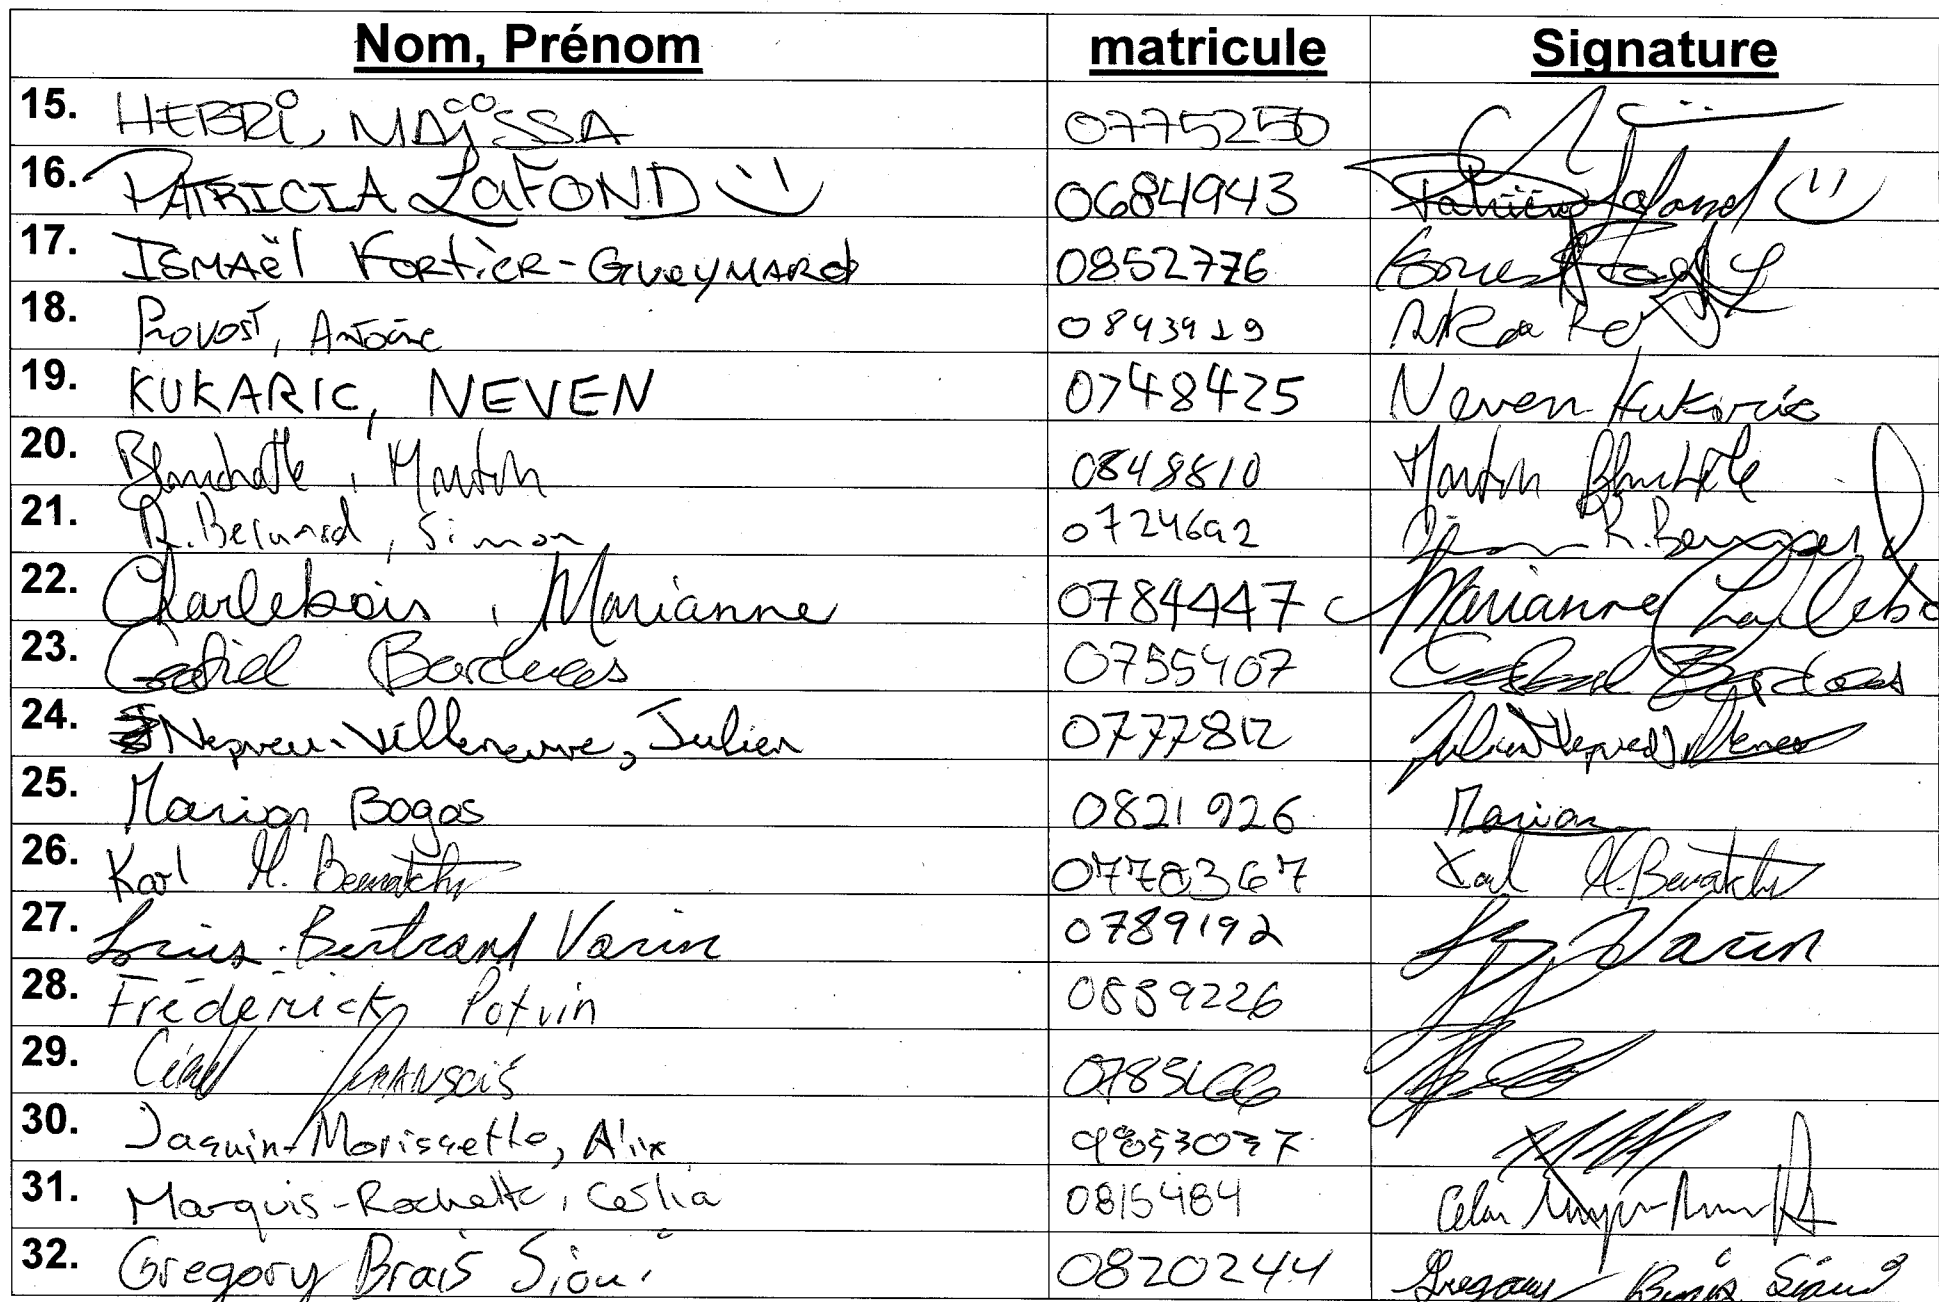 Nom, Prénom matricule Signature
15. HEBRI, MAÏSSA 0775250
16. PATRICIA LAFOND 0684943 Patricia Lafond
17. ISMAËl FORTIER-GUEYMARD 0852776
18. Provost, Antoine 0843919
19. KUKARIC, NEVEN 0748425 Neven Kukaric
20. Blanchette, Martin 0848810 Martin Blanchette
21. R.Bernard, Simon 0724692 Simon R.Bernard
22. Charlebois, Marianne 0784447 Marianne Charlebo
23. Gabriel Bordeleau 0755407 Gabriel
24. Nepveu-Villeneuve, Julien 0777812 Julien Nepveu Villeneuve
25. Marian Bogos 0821926 Marian
26. Karl M. 0778367 Karl M.
27. Louis-Bertrand Varin 0789192 Varin
28. Frédérick Potvin 0889226
29. 
30. Jaquin-Morissette, Alix
31. Marquis-Rochette, Celia 0815484
32. Gregory Brais Sioui 0820244 Gregory Brais Sioui